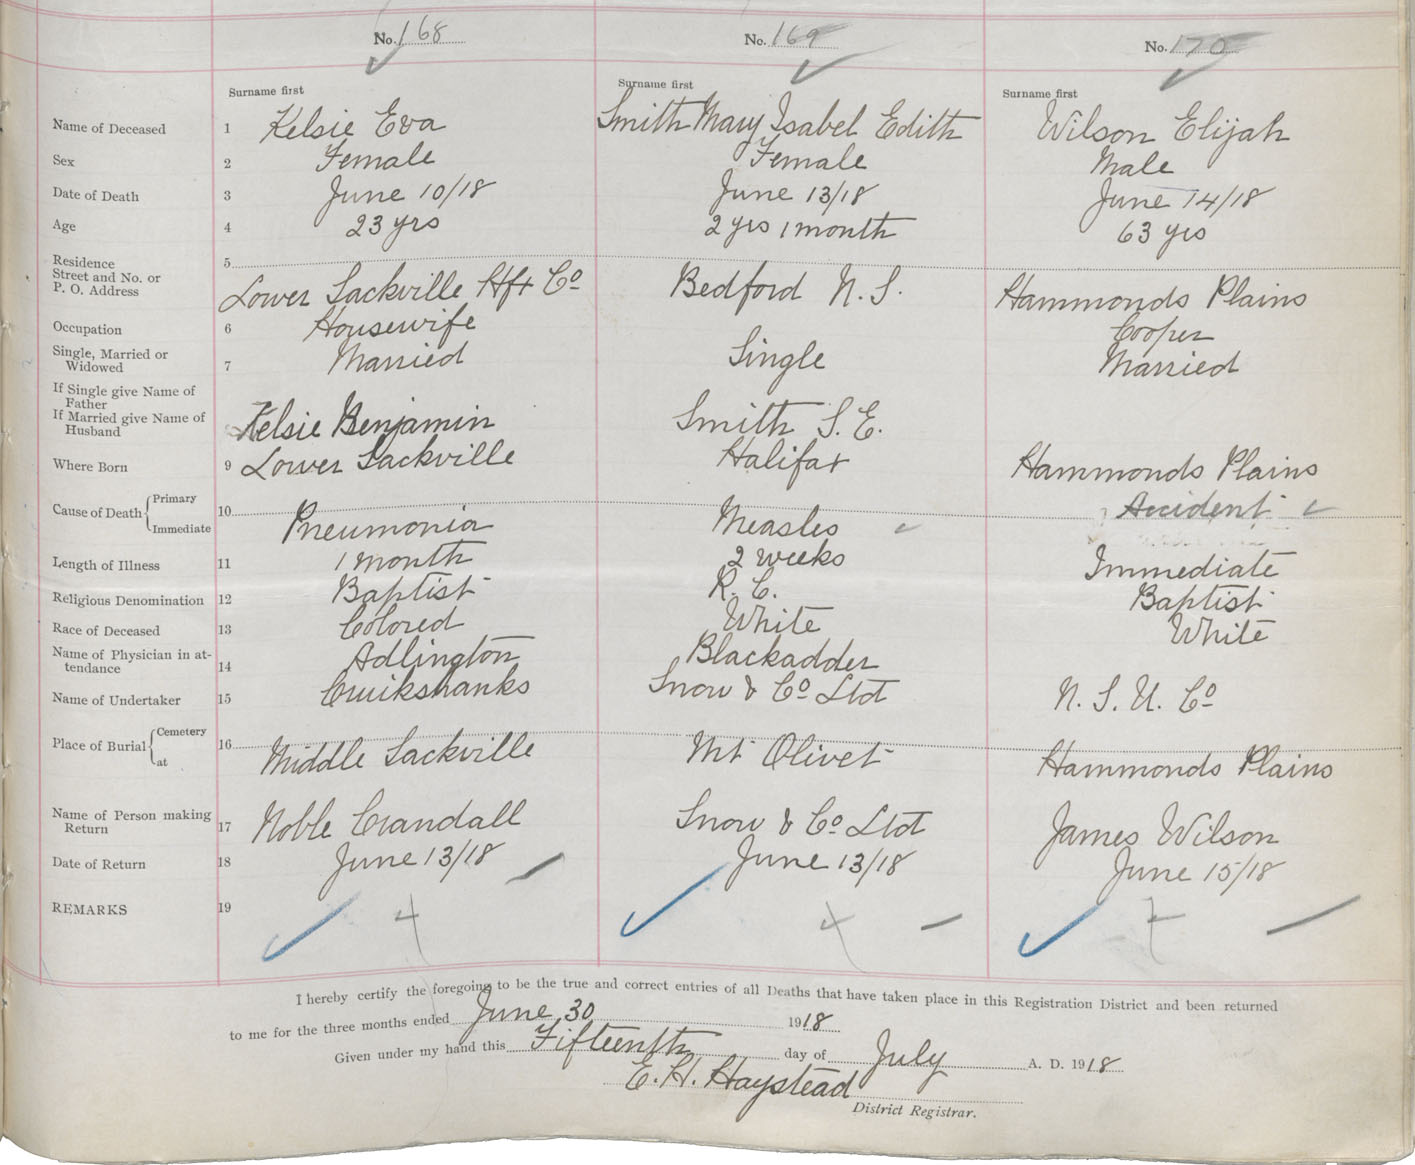 No. 168 No. 169 No. 170
Surname first Surname first Surname first
Name of Deceased 1 Kelsie Eva Smith Mary Isabel Edith Wilson Elijah
Sex 2 Female Female Male
Date of Death 3 June 10/18 June 13/18 June 14/18
Age 4 23 yrs 2 yrs 1 month 63 yrs
Residence 5
Street and No. or
P. O. Address Lower Sackville Hfx Co Bedford N. S. Hammonds Plains
Occupation 6 Housewife Cooper
Single, Married or
Widowed 7 Married Single Married
If Single give Name of
Father
If Married give Name of
Husband Kelsie Benjamin Smith S. E.
Where Born 9 Lower Sackville Halifax Hammonds Plains
Cause of Death Primary 10 Accident
Immediate Pneumonia Measles
Length of Illness 11 1 month 2 weeks Immediate
Religious Denomination 12 Baptist R. C. Baptist
Race of Deceased 13 Colored White White
Name of Physician in at-
tendance 14 Adlington Blackadder
Name of Undertaker 15 Cruikshanks Snow & Co Ltd N. S. U. Co
Place of Burial Cemetery 16
at Middle Sackville Mt Olivet Hammonds Plains
Name of Person making
Return 17 Noble Crandall Snow & Co Ltd James Wilson
Date of Return 18 June 13/18 June 13/18 June 15/18
REMARKS 19
I hereby certify the foregoing to be the true and correct entries of all Deaths that have taken place in this Registration District and been returned
to me for the three months ended June 30 1918
Given under my hand this Fifteenth day of July A. D. 1918
E. H. Haystead
District Registrar.